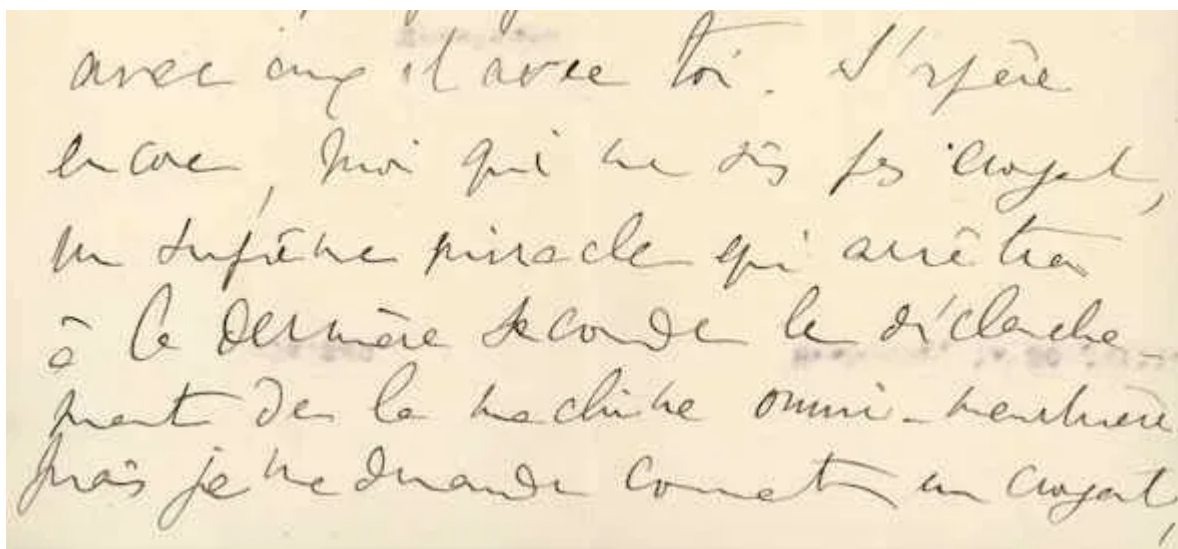 avec eux et avec toi. J'espère
encore, moi qui ne suis pas croyant,
un suprême miracle qui arrêtera
à la dernière seconde le déclenche-
ment de la machine omni-meurtrière
Mais je me demande comment un croyant,